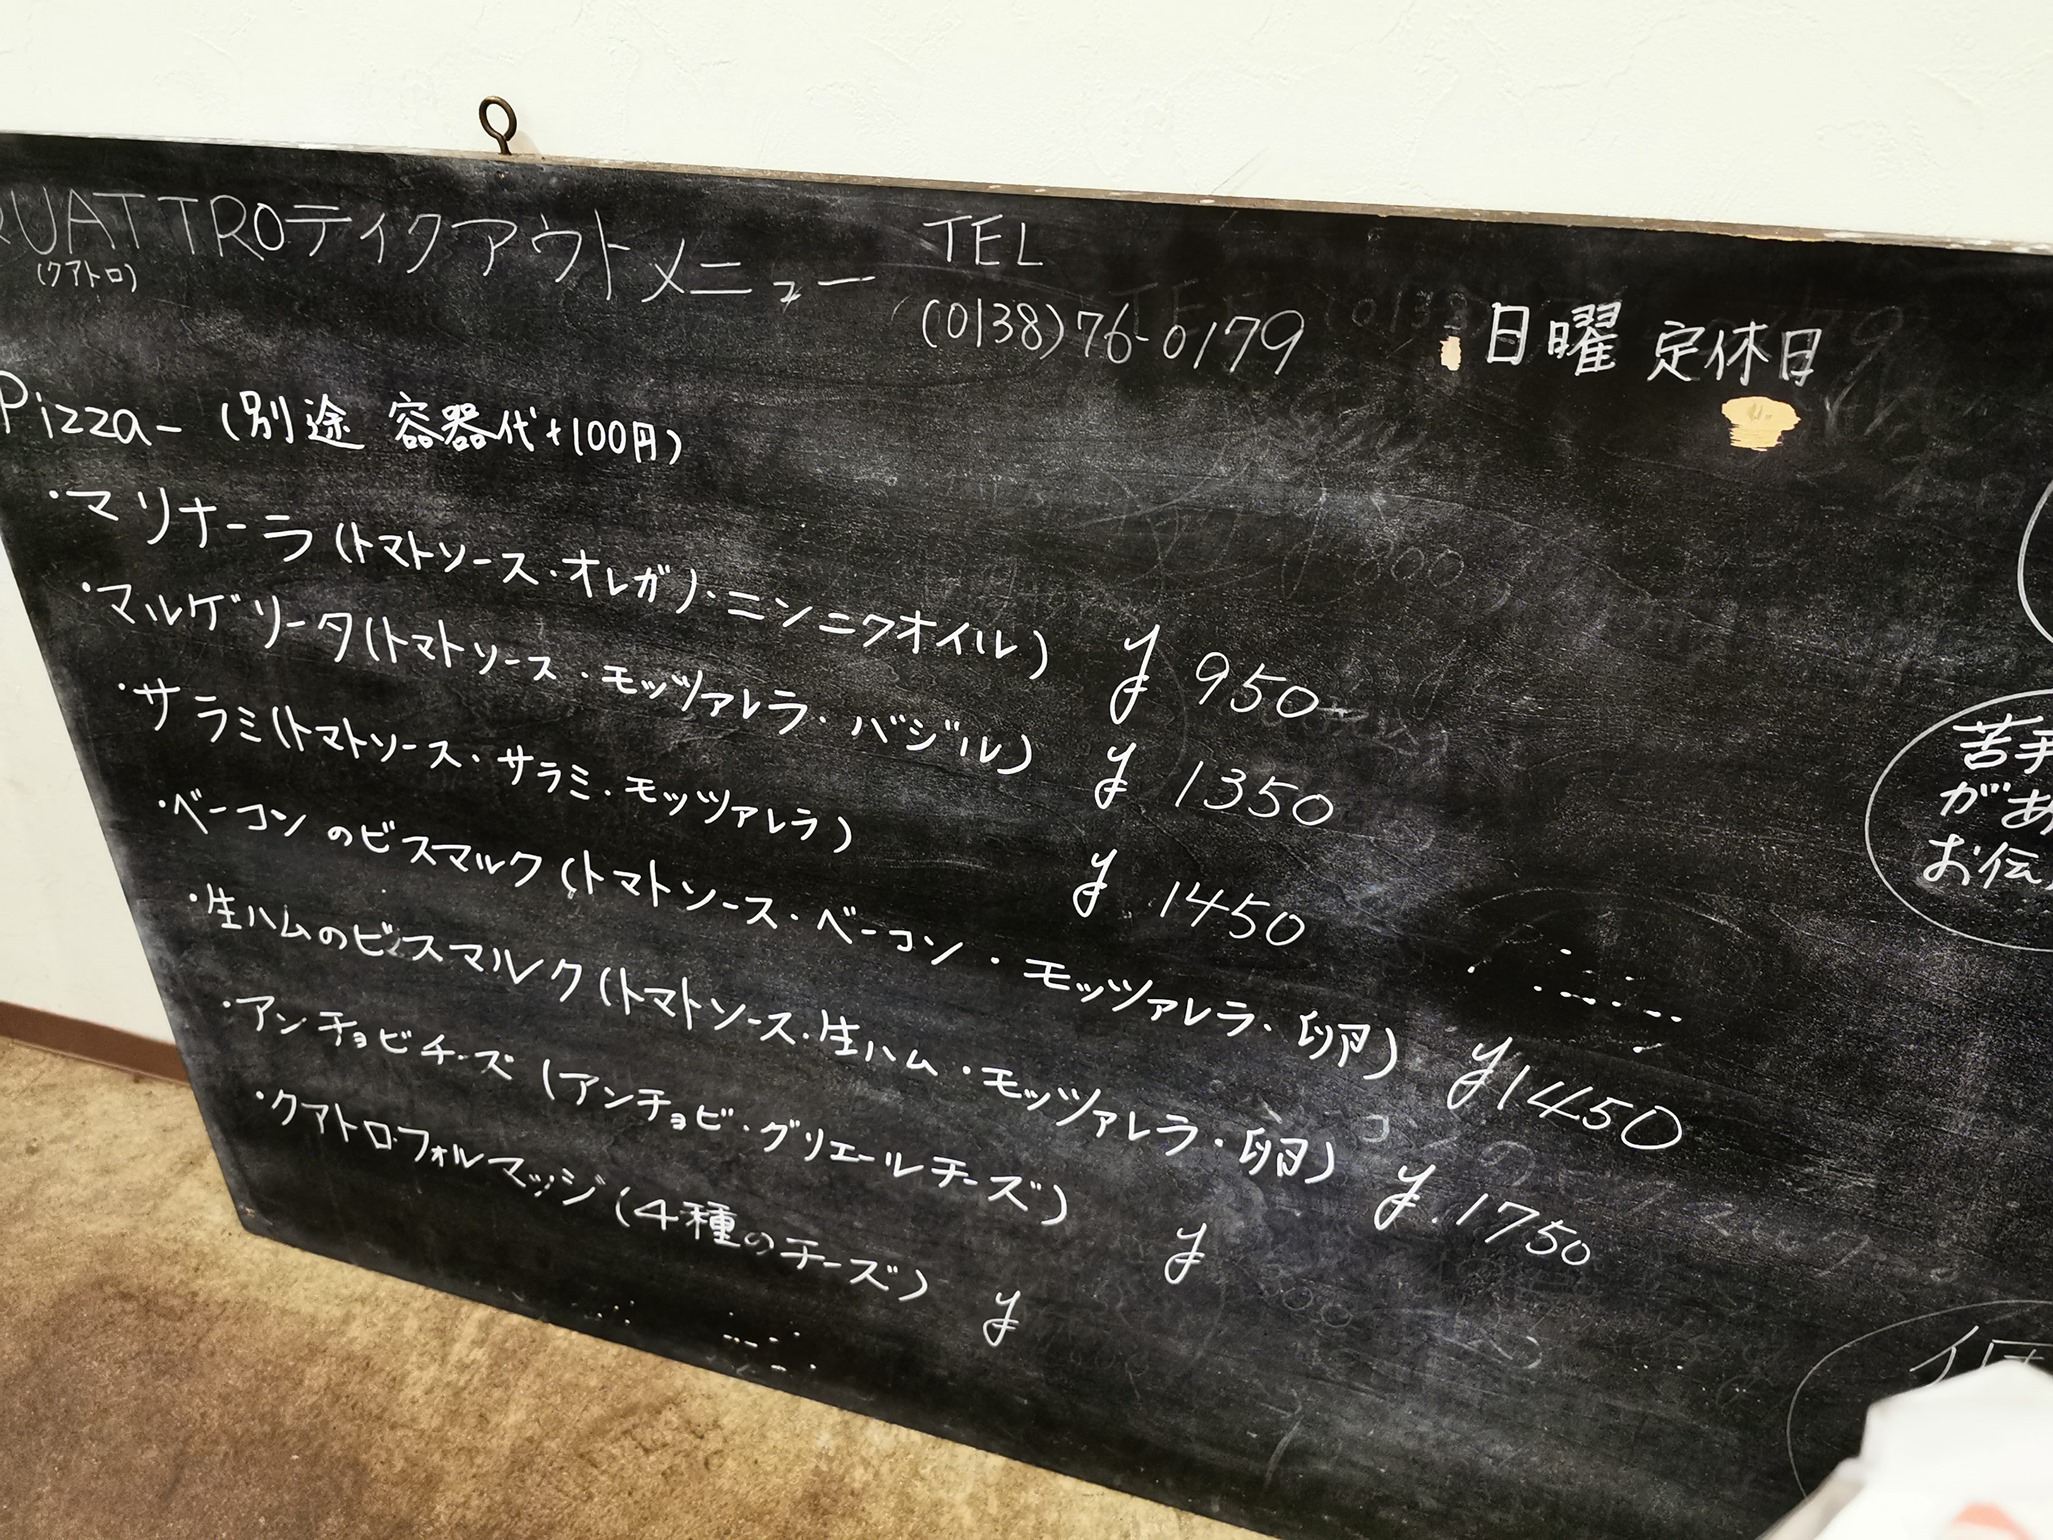 QUATTROテイクアウトメニュー
(クアトロ)
TEL
(0138)76-0179
日曜 定休日
Pizza- (別途 容器代+100円)
・マリナーラ(トマトソース・オレガノ・ニンニクオイル) ¥ 950-
・マルゲリータ(トマトソース・モッツァレラ・バジル) ¥ 1350
・サラミ(トマトソース・サラミ・モッツァレラ) ¥ 1450
・ベーコンのビスマルク(トマトソース・ベーコン・モッツァレラ・卵) ¥1450
・生ハムのビスマルク(トマトソース・生ハム・モッツァレラ・卵) ¥.1750
・アンチョビチーズ(アンチョビ・グリエールチーズ) ¥
・クアトロ・フォルマッジ(4種のチーズ) ¥
苦手
があ
お伝